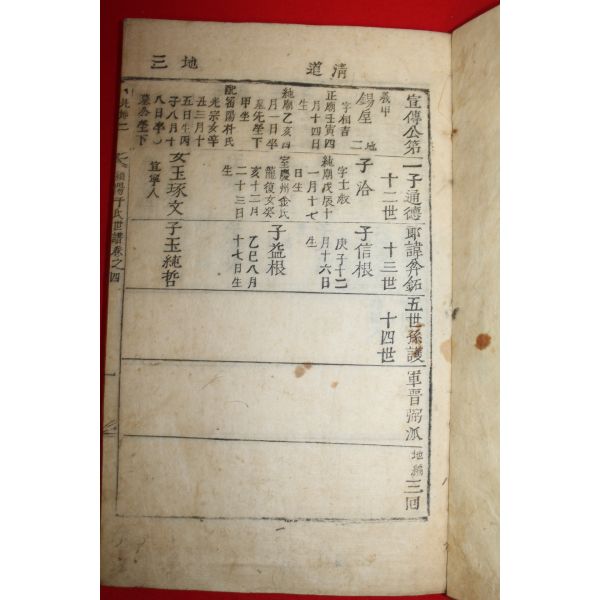 清道 地三
宣傳公第一子通德郎諱弁鉐五世孫護軍晋弼派 地編三回
義甲
錫 二 地
字相吉
正廟壬寅四
月十四日
生
純廟乙亥四
月一日卒
墓先塋下
甲坐
配密陽朴氏
光宗女辛
丑三月十
五日生丙
子八月十
八日卒
墓合塋下
十二世
子洽
字士叔
純廟戊辰十
一月十七
日生
室慶州金氏
龍復女癸
亥十二月
二十三日
生
女玉琢文
宜寧人
十三世
子信根
庚子十二
月十六日
生
子益根
乙巳八月
十七日生
子玉純哲
十四世
氏世譜卷之四